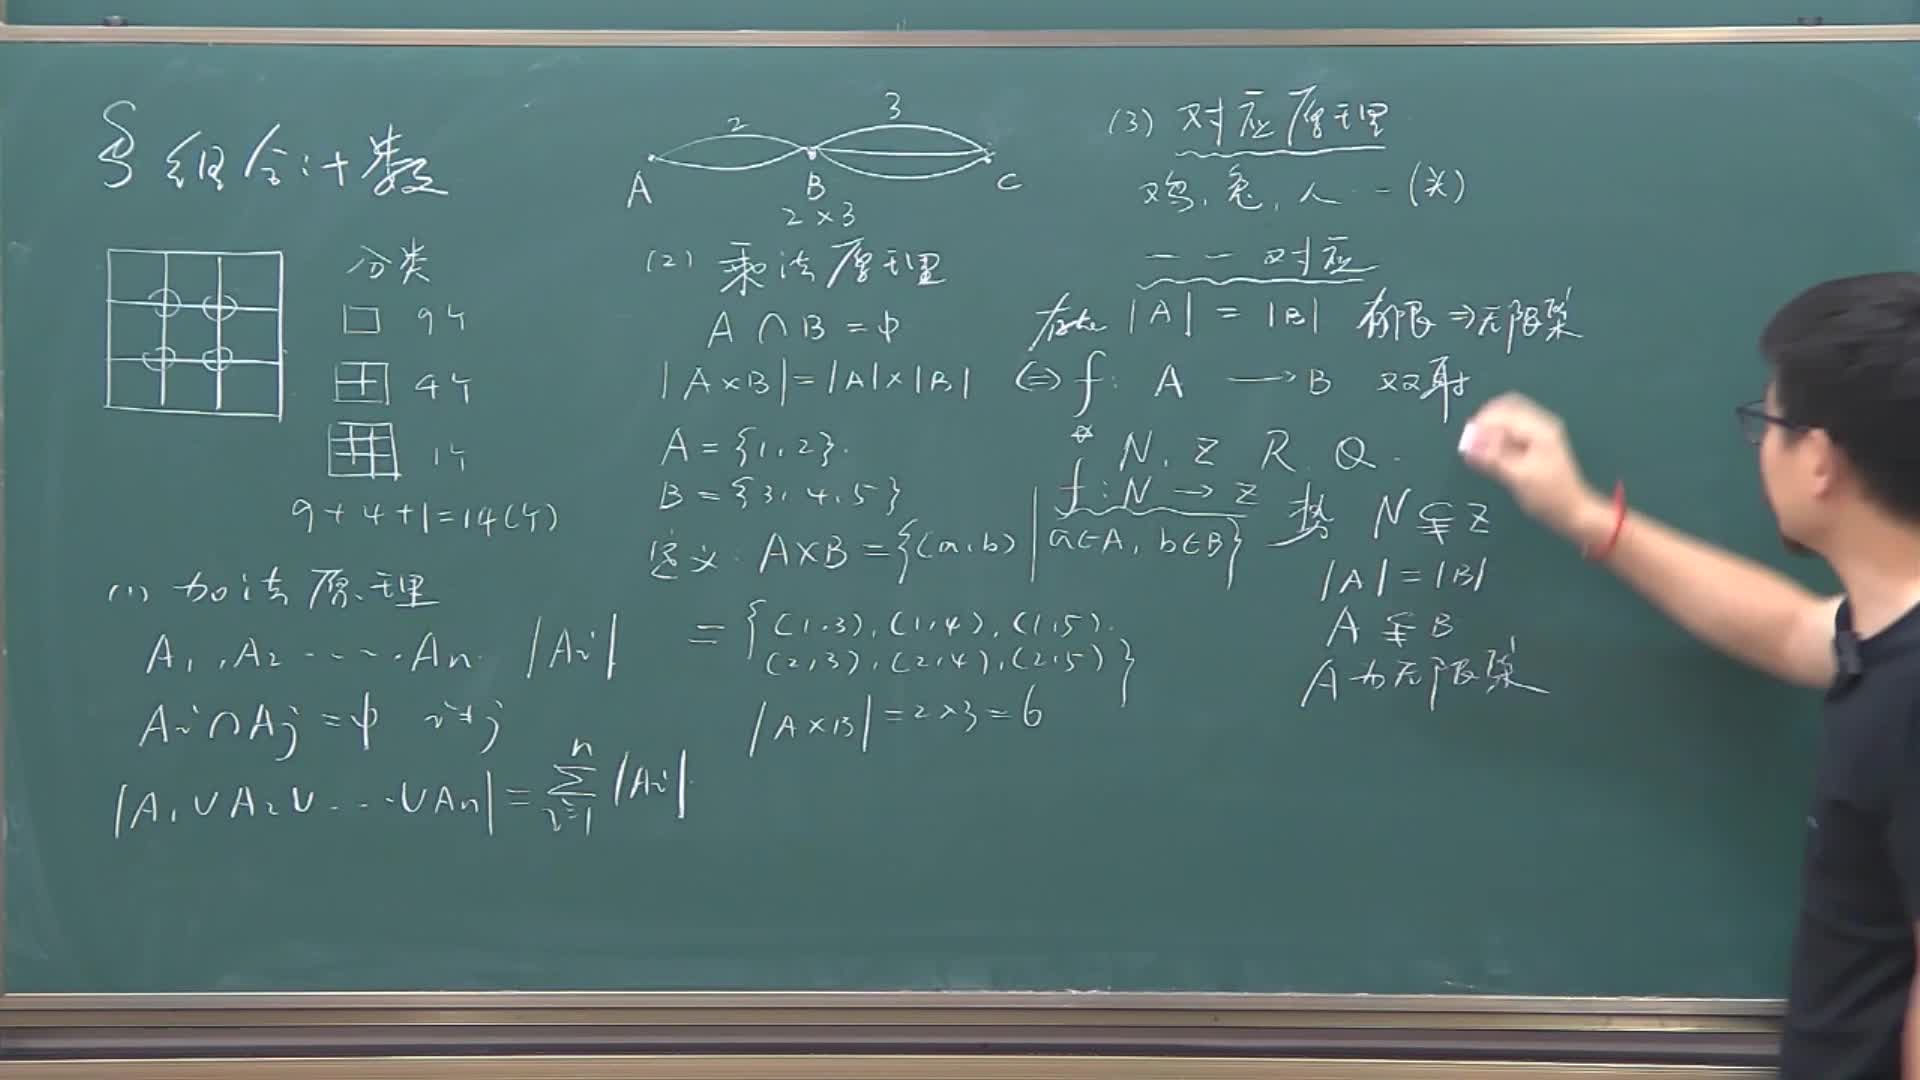 § 组合计数
分类
9个
4个
1个
9+4+1=14(个)
(1) 加法原理
A₁,A₂……An |Ai|
Ai∩Aj=φ i≠j
|A₁∪A₂∪…∪An|=∑ⁿᵢ₌₁|Ai|
2 3
A B C
2×3
(2) 乘法原理
A∩B=φ
|A×B|=|A|×|B|
A={1,2}.
B={3,4,5}
定义:A×B={(a,b)|a∈A, b∈B}
={(1,3),(1,4),(1,5).
(2,3),(2,4),(2,5)}
|A×B|=2×3=6
(3) 对应原理
鸡,兔,人…(头)
一一对应
|A|=|B| 有限⇒无限集
⇔ f: A → B 双射
N, Z R, Q.
f:N→Z 势 N⫋Z
|A|=|B|
A⫋B
A为无限集